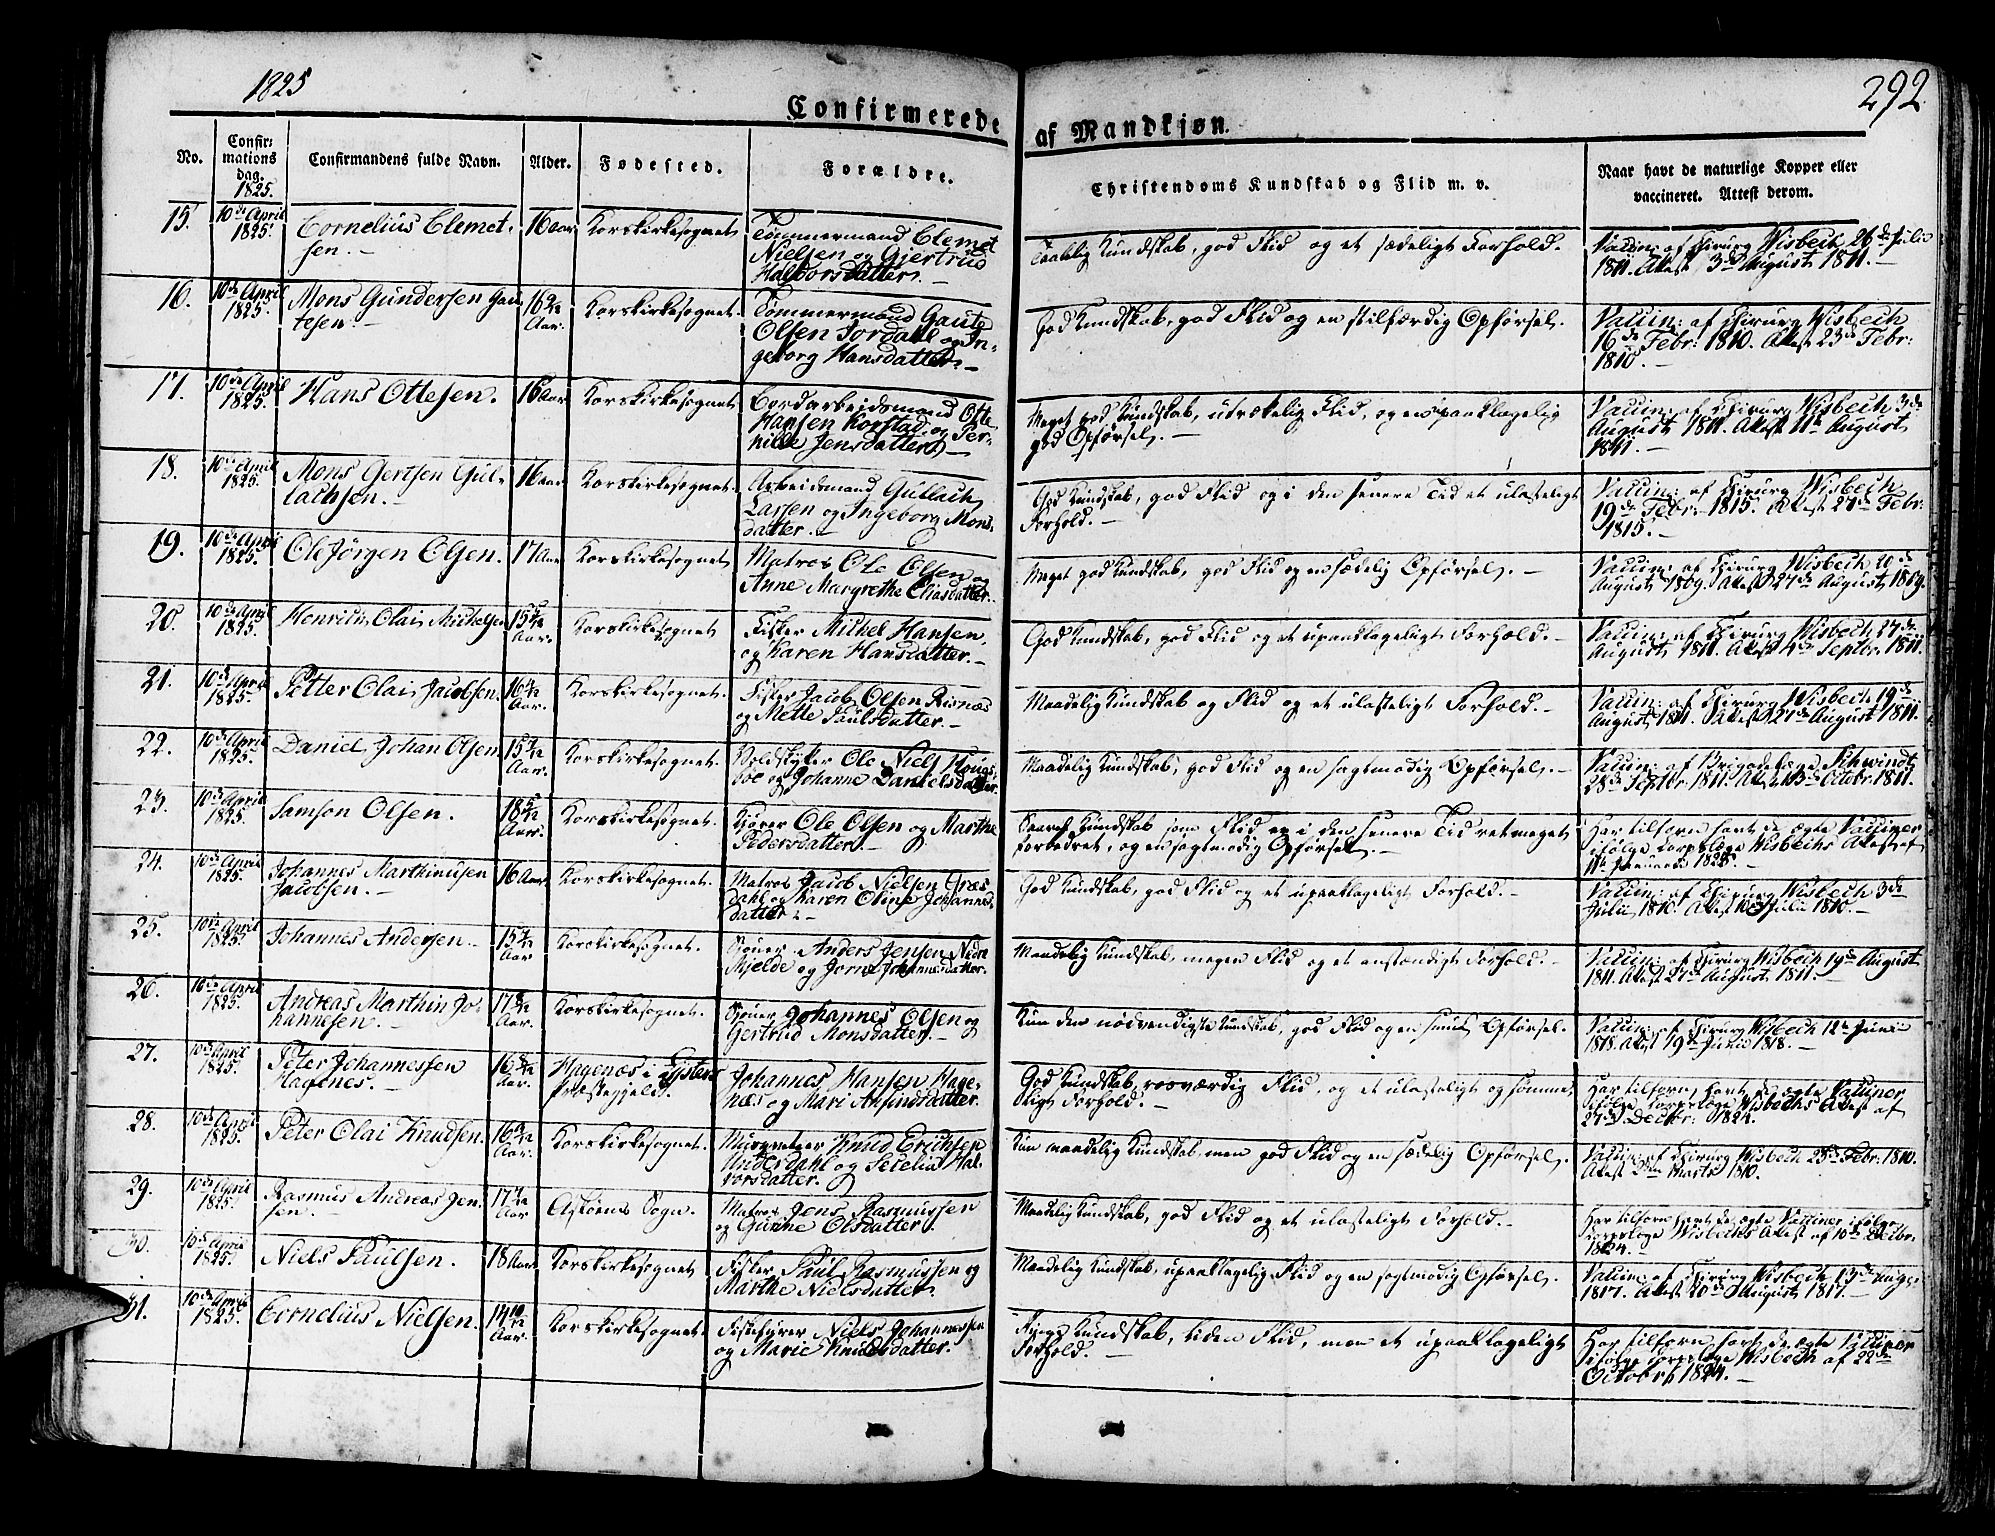 1825
292
Confirmerede af Mandkjøn.
No.
Confir-
mations
dag.
1825.
Confirmandens fulde Navn.
Alder.
Fødested.
Forældre.
Christendoms Kundskab og Flid m. v.
Naar havt de naturlige Kopper eller
vaccineret. Attest derom.
15.
10de April
1825.
Cornelius Clemet-
sen.
16 aar
Korskirkesognet
Tømmermand Clemet
Nielsen og Gjertrud
Halvorsdatter.
Taalelig Kundskab, god Flid og et sædeligt Forhold.
Vaccin: af Chirurg Wisbech 26de Julii
1811. Attest 3de August 1811.
16.
10de April
1825.
Mons Gundersen Gau-
tesen.
Aar.
Korskirkesognet.
Tømmermand Gaute
Olsen Jordahl og In-
geborg Hansdatter.
God Kundskab, god Flid og en stilfærdig Opførsel.
Vaccin: af Chirurg Wisbech
16de Febr: 1810. Attest 23de Febr:
1810.
17.
10de April
1825.
Hans Ottesen.
16 aar
Korskirkesognet
Hansen Korstad og Per-
nille Jensdatter.
Meget god Kundskab, Flid, og en upaaklagelig
god Opførsel.
Vaccin: af Chirurg Wisbech 3de
August 1811. Attest 11te August
1811.
18.
10de April
1825.
Mons Gertsen Gul-
lachsen.
16 aar
Korskirkesognet.
Arbeidsmand Gullach
Larsen og Ingeborg Mons-
datter.
God Kundskab, god Flid og i den senere Tid et ulasteligt
Forhold.
Vaccin: af Chirurg Wisbech
19de Febr: 1815. Attest 27de Febr:
1815.
19.
10de April
1825.
Ole Jörgen Olsen.
17 Aar
Korskirkesognet
Matros Ole Olsen og
Anne Margrethe
Meget god Kundskab, god Flid og en sædelig Opførsel.
Vaccin: af Chirurg Wisbech 20de
August 1809. Attest 27de August 1809.
20.
10de April
1825.
Henrich Olai Michelsen
Aar.
Korskirkesognet
Fisker Michel Hansen
og Karen Hansdatter.
God Kundskab, god Flid og et upaaklageligt Forhold.
Vaccin: af Chirurg Wisbech 27de
August 1811. Attest 4de Septbr: 1811.
21.
10de April
1825.
Petter Olai Jacobsen.
Aar.
Korskirkesognet.
Fisker Jacob Olsen Risnæs
og Mette Paulsdatter.
Maadelig Kundskab og Flid og et ulasteligt Forhold.
Vaccin: af Chirurg Wisbech 19de
August 1811. Attest 27de August 1811.
22.
10de April
1825.
Daniel Johan Olsen.
Aar.
Korskirkesognet.
Ole Niels
og Johanne Danielsdatter.
Maadelig Kundskab, god Flid og en sagtmodig Opførsel.
Vaccin: af Brigadelæge Schwindt
28de Septbr: 1811. Attest Octobr: 1811.
23.
10de April
1825.
Samson Olsen.
Aar.
Korskirkesognet.
Kjører Ole Olsen og Marthe
Pedersdatter.
Kundskab som Flid er i den senere Tid ret meget
forbedret, og en sagtmodig Opførsel.
Har tilforn havt de ægte Vacciner
ifølge Corpslæge Wisbechs Attest af
11te Januarii 1825.
24.
10de April
1825.
Johannes Marthinusen
Jacobsen.
16 Aar
Korskirkesognet.
Matros Jacob Nielsen Græs-
dahl og Karen Oline Johannes-
datter.
God Kundskab, god Flid og et upaaklageligt Forhold.
Vaccin: af Chirurg Wisbech 3de
Julii 1810. Attest 10de Julii 1810.
25.
10de April
1825.
Johannes Andersen.
Aar
Korskirkesognet.
Anders Jensen Nedre
Mjelde og Johannesdatter.
Maadelig Kundskab, megen Flid og et anstændigt Forhold.
Vaccin: af Chirurg Wisbech 19de August
1811. Attest 27de August 1811.
26.
10de April
1825.
Andreas Marthin Jo-
hannesen.
Aar.
Korskirkesognet.
Johannes Olsen og
Gertrud Monsdatter.
Kun den nødvendigste Kundskab, god Flid og en smuk Opførsel.
Vaccin: af Chirurg Wisbech 12te Junii
1818. Attest 19de Junii 1818.
27.
10de April
1825.
Peter Johannessen
Hagenes.
Aar.
Hagenæs i Lysters
Præstegjeld.
Johannes Hansen Hage-
næs og Mari Amundsdatter.
God Kundskab, rosværdig Flid, og et ulasteligt og sømme-
ligt Forhold.
Har tilforn havt de ægte Vacciner
ifølge Corpslæge Wisbechs Attest af
27de Decbr: 1824.
28.
10de April
1825.
Peter Olai Knudsen.
Aar.
Korskirkesognet.
Murmester Knud Erichsen
Underdahl og Secelia Hal-
vorsdatter.
Kun maadelig Kundskab, men god Flid og en sædelig Opførsel.
Vaccin: af Chirurg Wisbech 23de Febr: 1810.
Attest Marts 1810.
29.
10de April
1825.
Rasmus Andreas Jen-
sen.
Aar
Askøens Sogn.
Matros Jens Rasmussen
og Gunne Olsdatter.
Maadelig Kundskab, god Flid og et ulasteligt Forhold.
Har tilforn havt de ægte Vacciner ifølge
Corpslæge Wisbechs Attest af 10de Decbr:
1824.
30.
10de April
1825.
Niels Paulsen.
18 Aar
Korskirkesognet
Fisker Paul Rasmussen og
Marthe Nielsdatter.
Maadelig Kundskab, upaaklagelig Flid og en sagtmodig Opførsel.
Vaccin: af Chirurg Wisbech 13de Aug:
1817. Attest 20de August 1817.
31.
10de April
1825.
Cornelius Nielsen.
14 10/12
Aar.
Korskirkesognet.
Niels Johannessen
og Marie Knudsdatter.
Kundskab, liden Flid, men et upaaklageligt
Forhold.
Har tilforn havt de ægte Vacciner
ifølge Corpslæge Wisbech af 22de
Octobr: 1824.